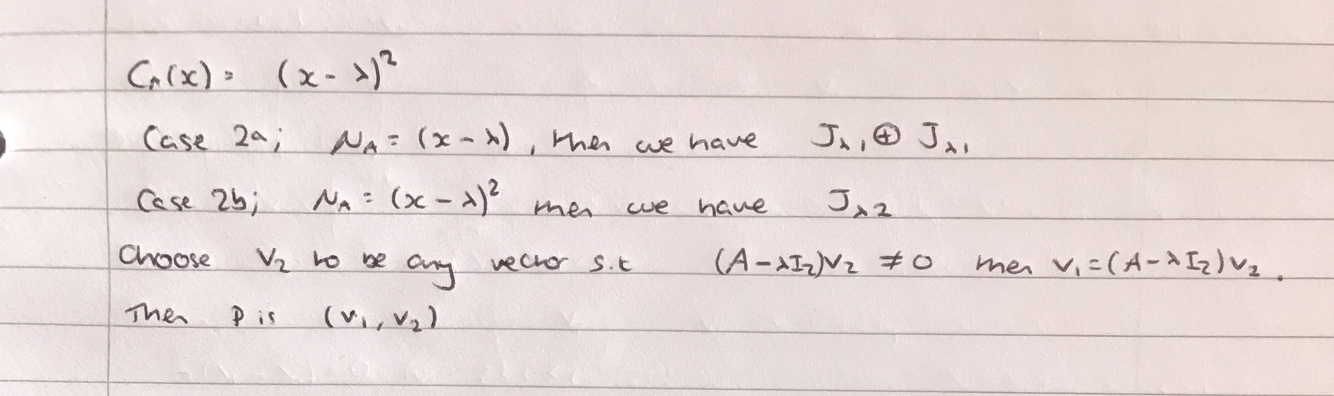 C_A(x) = (x - λ)²
Case 2a; μ_A = (x - λ), then we have J_λ,1 ⊕ J_λ,1
Case 2b; μ_A = (x - λ)² then we have J_λ,2
Choose v₂ to be any vector s.t (A - λI₂)v₂ ≠ 0 then v₁ = (A - λI₂)v₂.
Then P is (v₁, v₂)